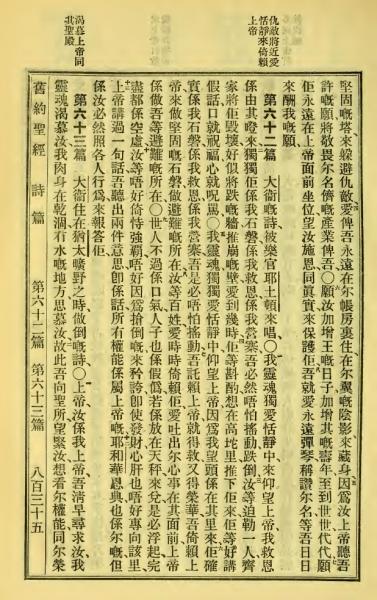 仇敵將近愛
恬靜來倚賴
上帝
渴慕上帝同
其聖殿
堅固嘅塔、來躱避仇敵、愛俾吾永遠在尔帳房裏住、在尔翼嘅陰影來藏身、因爲汝上帝聽吾
許嘅願、將敬畏尔名儕嘅產業俾吾〇願汝加增王嘅日子、加增其嘅壽年、至到世世代代、願
佢永遠在上帝面前坐位、望汝施恩同眞實來保護佢、吾就愛永遠彈琴稱讚尔名、等吾日日
來酬我嘅願、
第六十二篇 大衞嘅詩、被樂官耶土頓來唱〇我靈魂獨愛恬靜中來仰望上帝、我救恩
係由其來、獨獨佢係我石磐、係我救恩、係我營寨、吾必然唔怕搖動跌倒、汝等迫勒一人、齊
家將佢毀壞、好似將跌嘅牆、推崩嘅壁、愛到幾時、佢等斟酌想在高坨里推下佢來、佢等好講
假話、口就祝福、心就呪罵〇我靈魂獨獨愛恬靜中仰望上帝、因爲我望頭係在其里來、佢確
實係我石磐、係我救恩、係我營寨、吾是必唔怕搖動、吾託賴上帝就得救、又得榮華、吾倚賴上
帝來做堅固嘅石磐、做避難嘅所在、汝等百姓、愛時時倚賴佢、愛吐出尔心事、在其面前、上帝
係做吾等避難嘅所在〇世人不過係口氣、人子也係假僞、若係放在天秤來兌、是必浮起、完
盡都係空虛、汝等唔好倚恃強覇、唔好因爲搶倒嘅來矜誇、卽使發財、心肝也唔好專向該里、
上帝講過一句話、吾聽出兩件意思、卽係話所有權能係屬上帝嘅、耶和華恩典也係尔嘅、但
係汝必然照各人行爲來報答佢、
第六十三篇 大衞住在猶太曠野之時、做倒嘅詩〇上帝、汝係我上帝、吾清早尋求汝、我
靈魂渴慕汝、我肉身在乾涸冇水嘅地方思慕汝、故此吾向聖所望緊汝、想看尔權能同尔榮
舊約聖經 詩篇 第六十二篇 第六十三篇 八百三十五